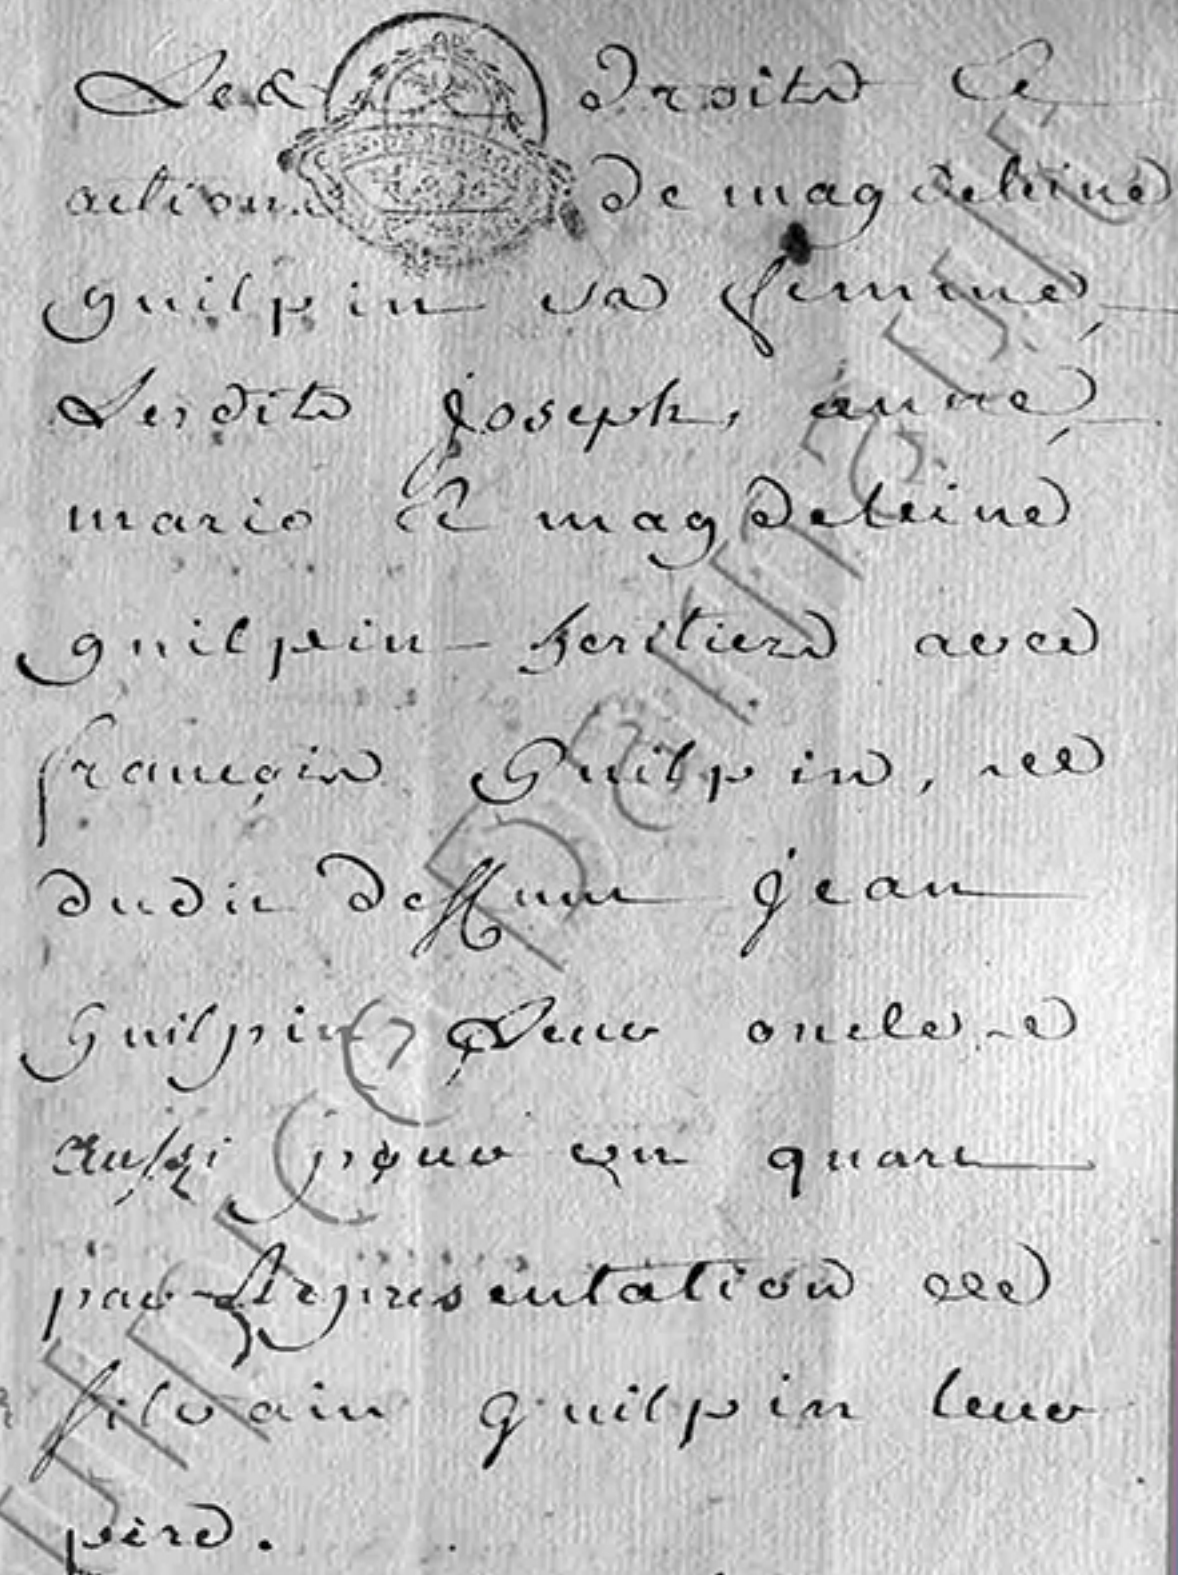 Les droits et
actions de magdeleine
guilpin sa femme,
Lesdits joseph, anne,
marie et magdeleine
guilpin heritiers avec
françois Guilpin, 
dudit deffunt jean
Guilpin, Leur oncle
aussi pour un quart
par Representation de
silvain guilpin leur
pere.